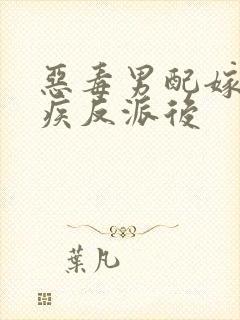 惡毒男配嫁
疾反派後
葉凡